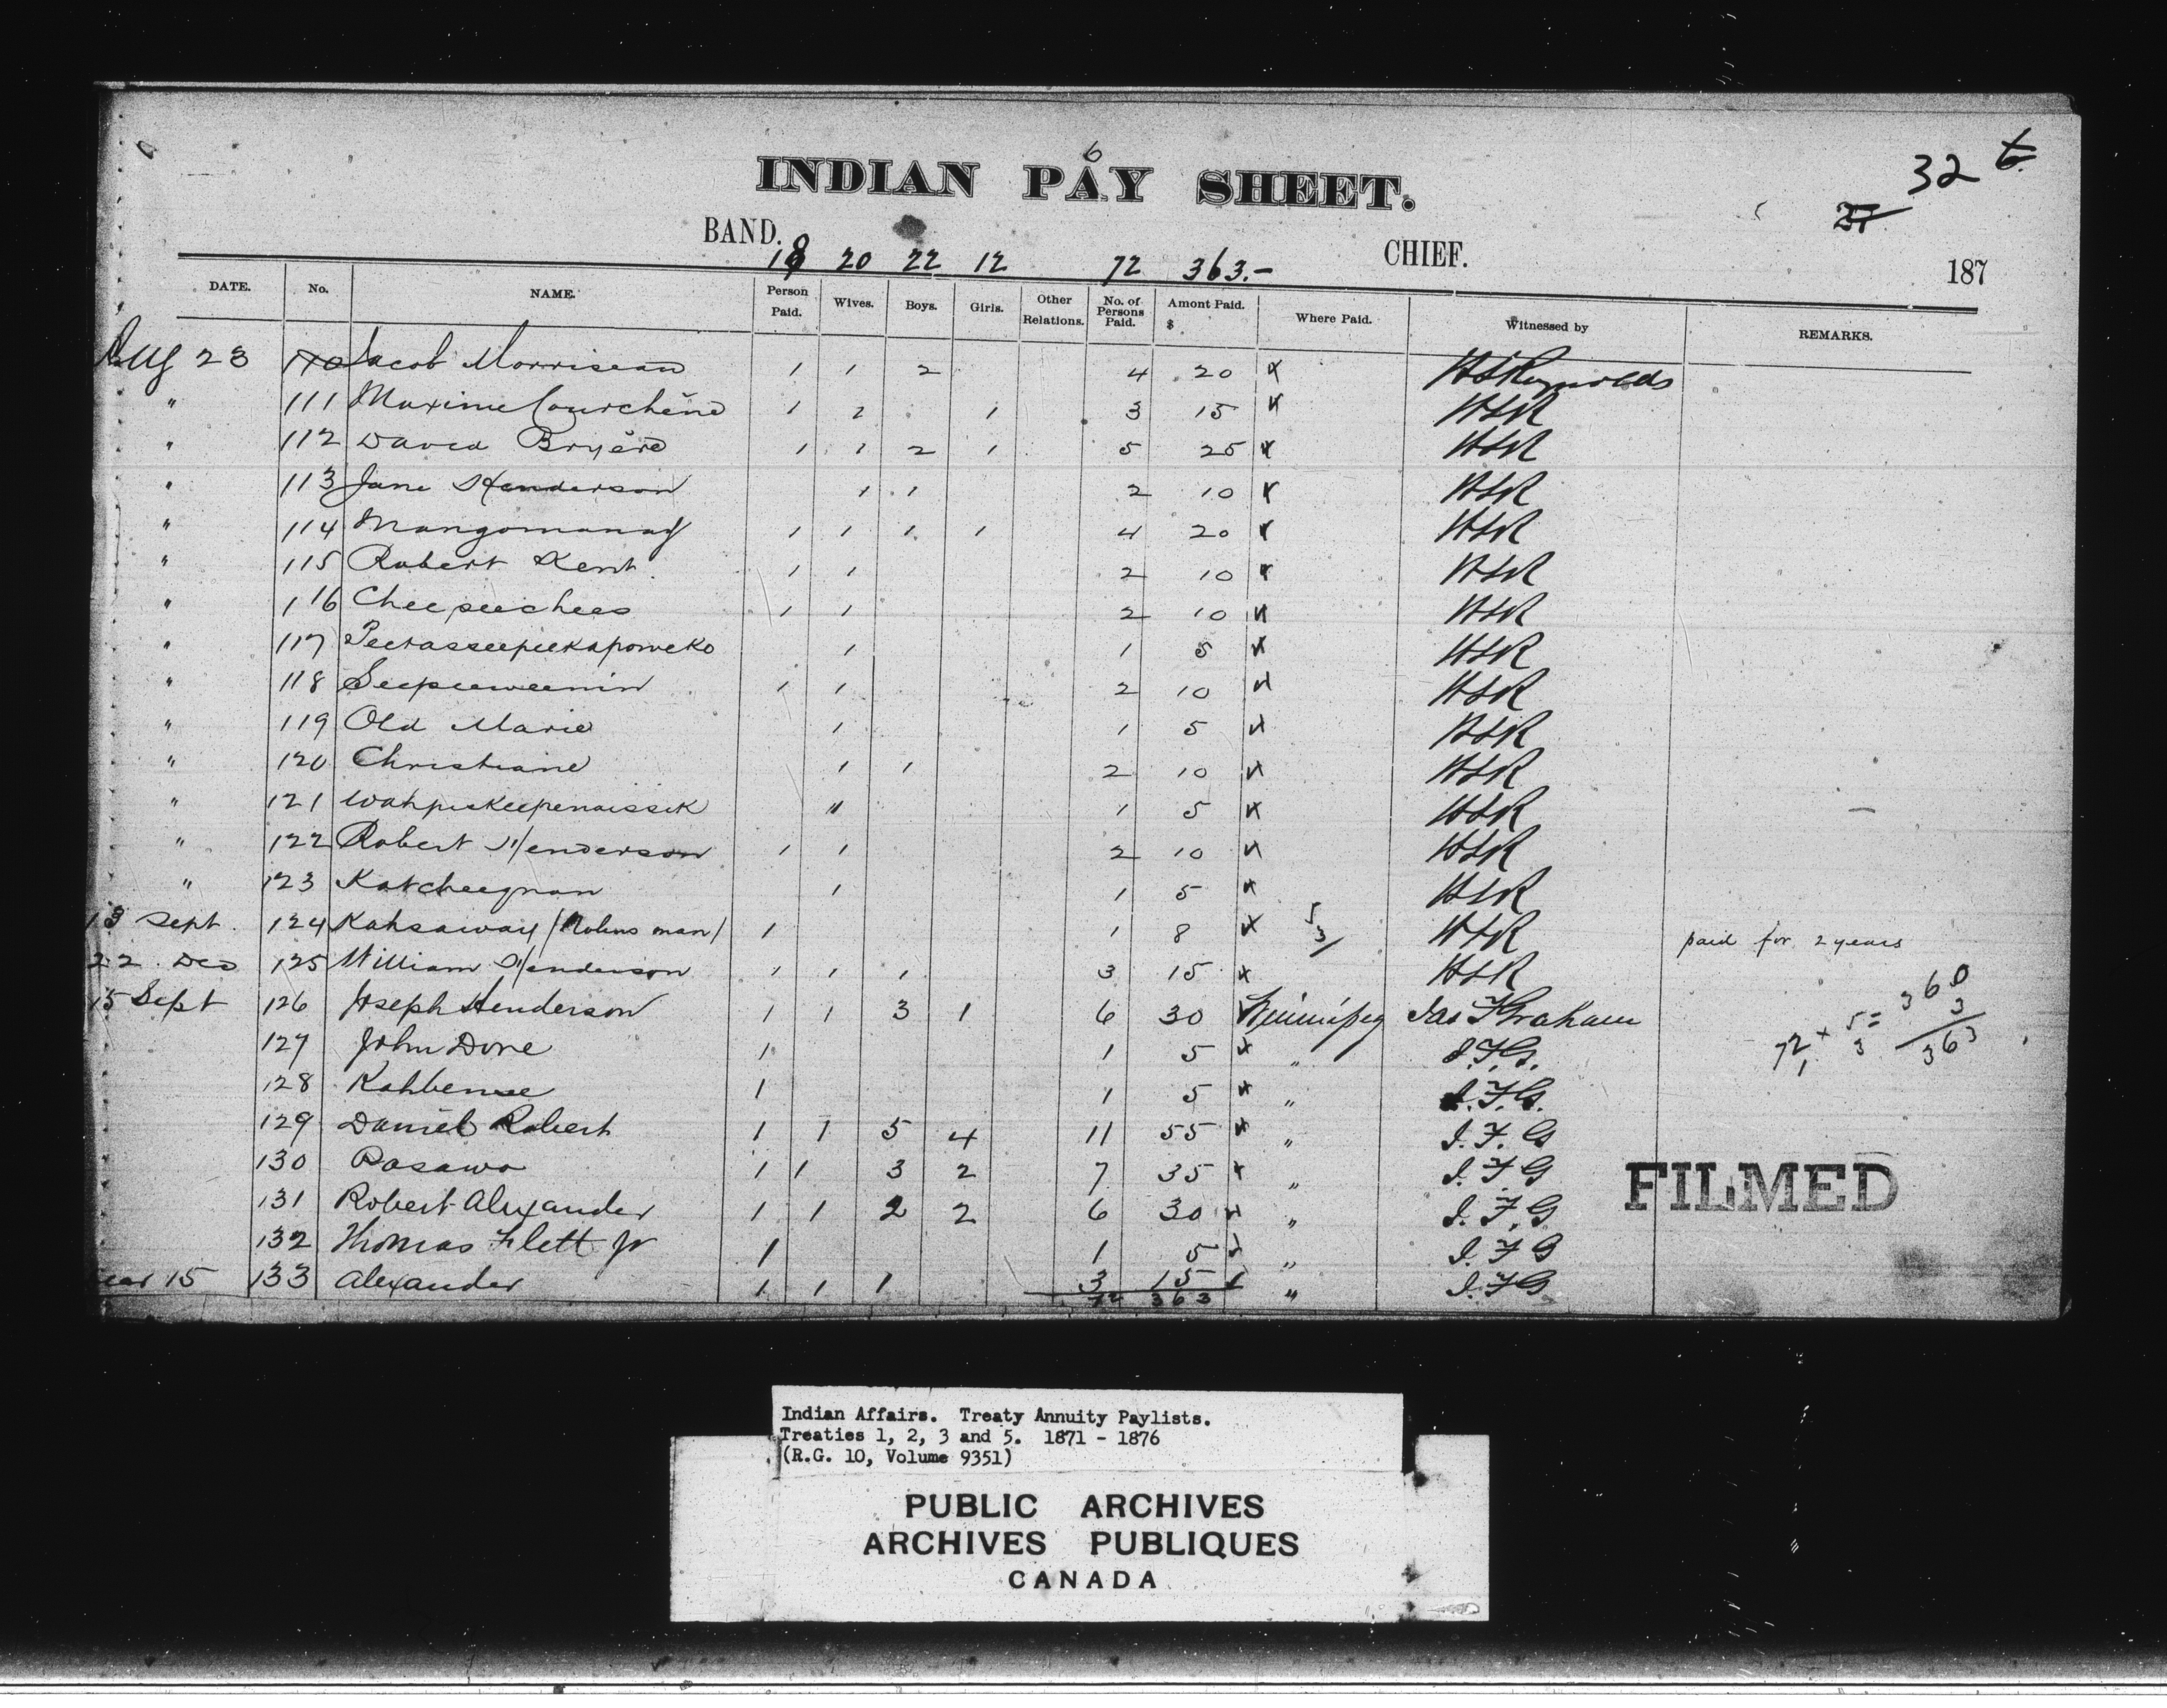 6
INDIAN PAY SHEET.
32 6
27
BAND.
CHIEF.
187
18 20 22 12 72 363.-
DATE. No. NAME. Person Paid. Wives. Boys. Girls. Other Relations. No. of Persons Paid. Amont Paid. $ Where Paid. Witnessed by REMARKS.
Aug 23 110 Jacob Morriseau 1 1 2 4 20 x HLReynolds
" 111 Maxime Courchêne 1 1 1 3 15 x HLR
" 112 David Bryère 1 1 2 1 5 25 x HLR
" 113 Jane Henderson 1 1 2 10 x HLR
" 114 1 1 1 1 4 20 x HLR
" 115 Robert Kent 1 1 2 10 x HLR
" 116 Cheepeechees 1 1 2 10 x HLR
" 117 1 1 5 x HLR
" 118 Seepeeweenin 1 1 2 10 x HLR
" 119 Old Marie 1 1 5 x HLR
" 120 Christiane 1 1 2 10 x HLR
" 121 Wahpiskeepenaissik " 1 5 x HLR
" 122 Robert Henderson 1 1 2 10 x HLR
" 123 1 1 5 x HLR
13 Sept. 124 Kahsaway 1 1 8 x 5 3/ HLR paid for 2 years
22 Dec 125 William Henderson 1 1 1 3 15 x HLR
15 Sept 126 Joseph Henderson 1 1 3 1 6 30 Winnipeg Jas F Graham
127 John Dore 1 1 5 x " J.F.G.
128 Kahbenue 1 1 5 x " J.F.G.
129 Daniel Robert 1 1 5 4 11 55 x " J.F.G
130 Pasawa 1 1 3 2 7 35 x " J.F.G
131 Robert Alexander 1 1 2 2 6 30 x " J.F.G
132 Thomas Flett Jr 1 1 5 x " J.F.G
15 133 Alexander 1 1 1 3 15 " J.F.G.
72 363
72 x 5 = 360
1 3 3
363
FILMED
Indian Affairs. Treaty Annuity Paylists.
Treaties 1, 2, 3 and 5. 1871 - 1876
(R.G. 10, Volume 9351)
PUBLIC ARCHIVES
ARCHIVES PUBLIQUES
CANADA